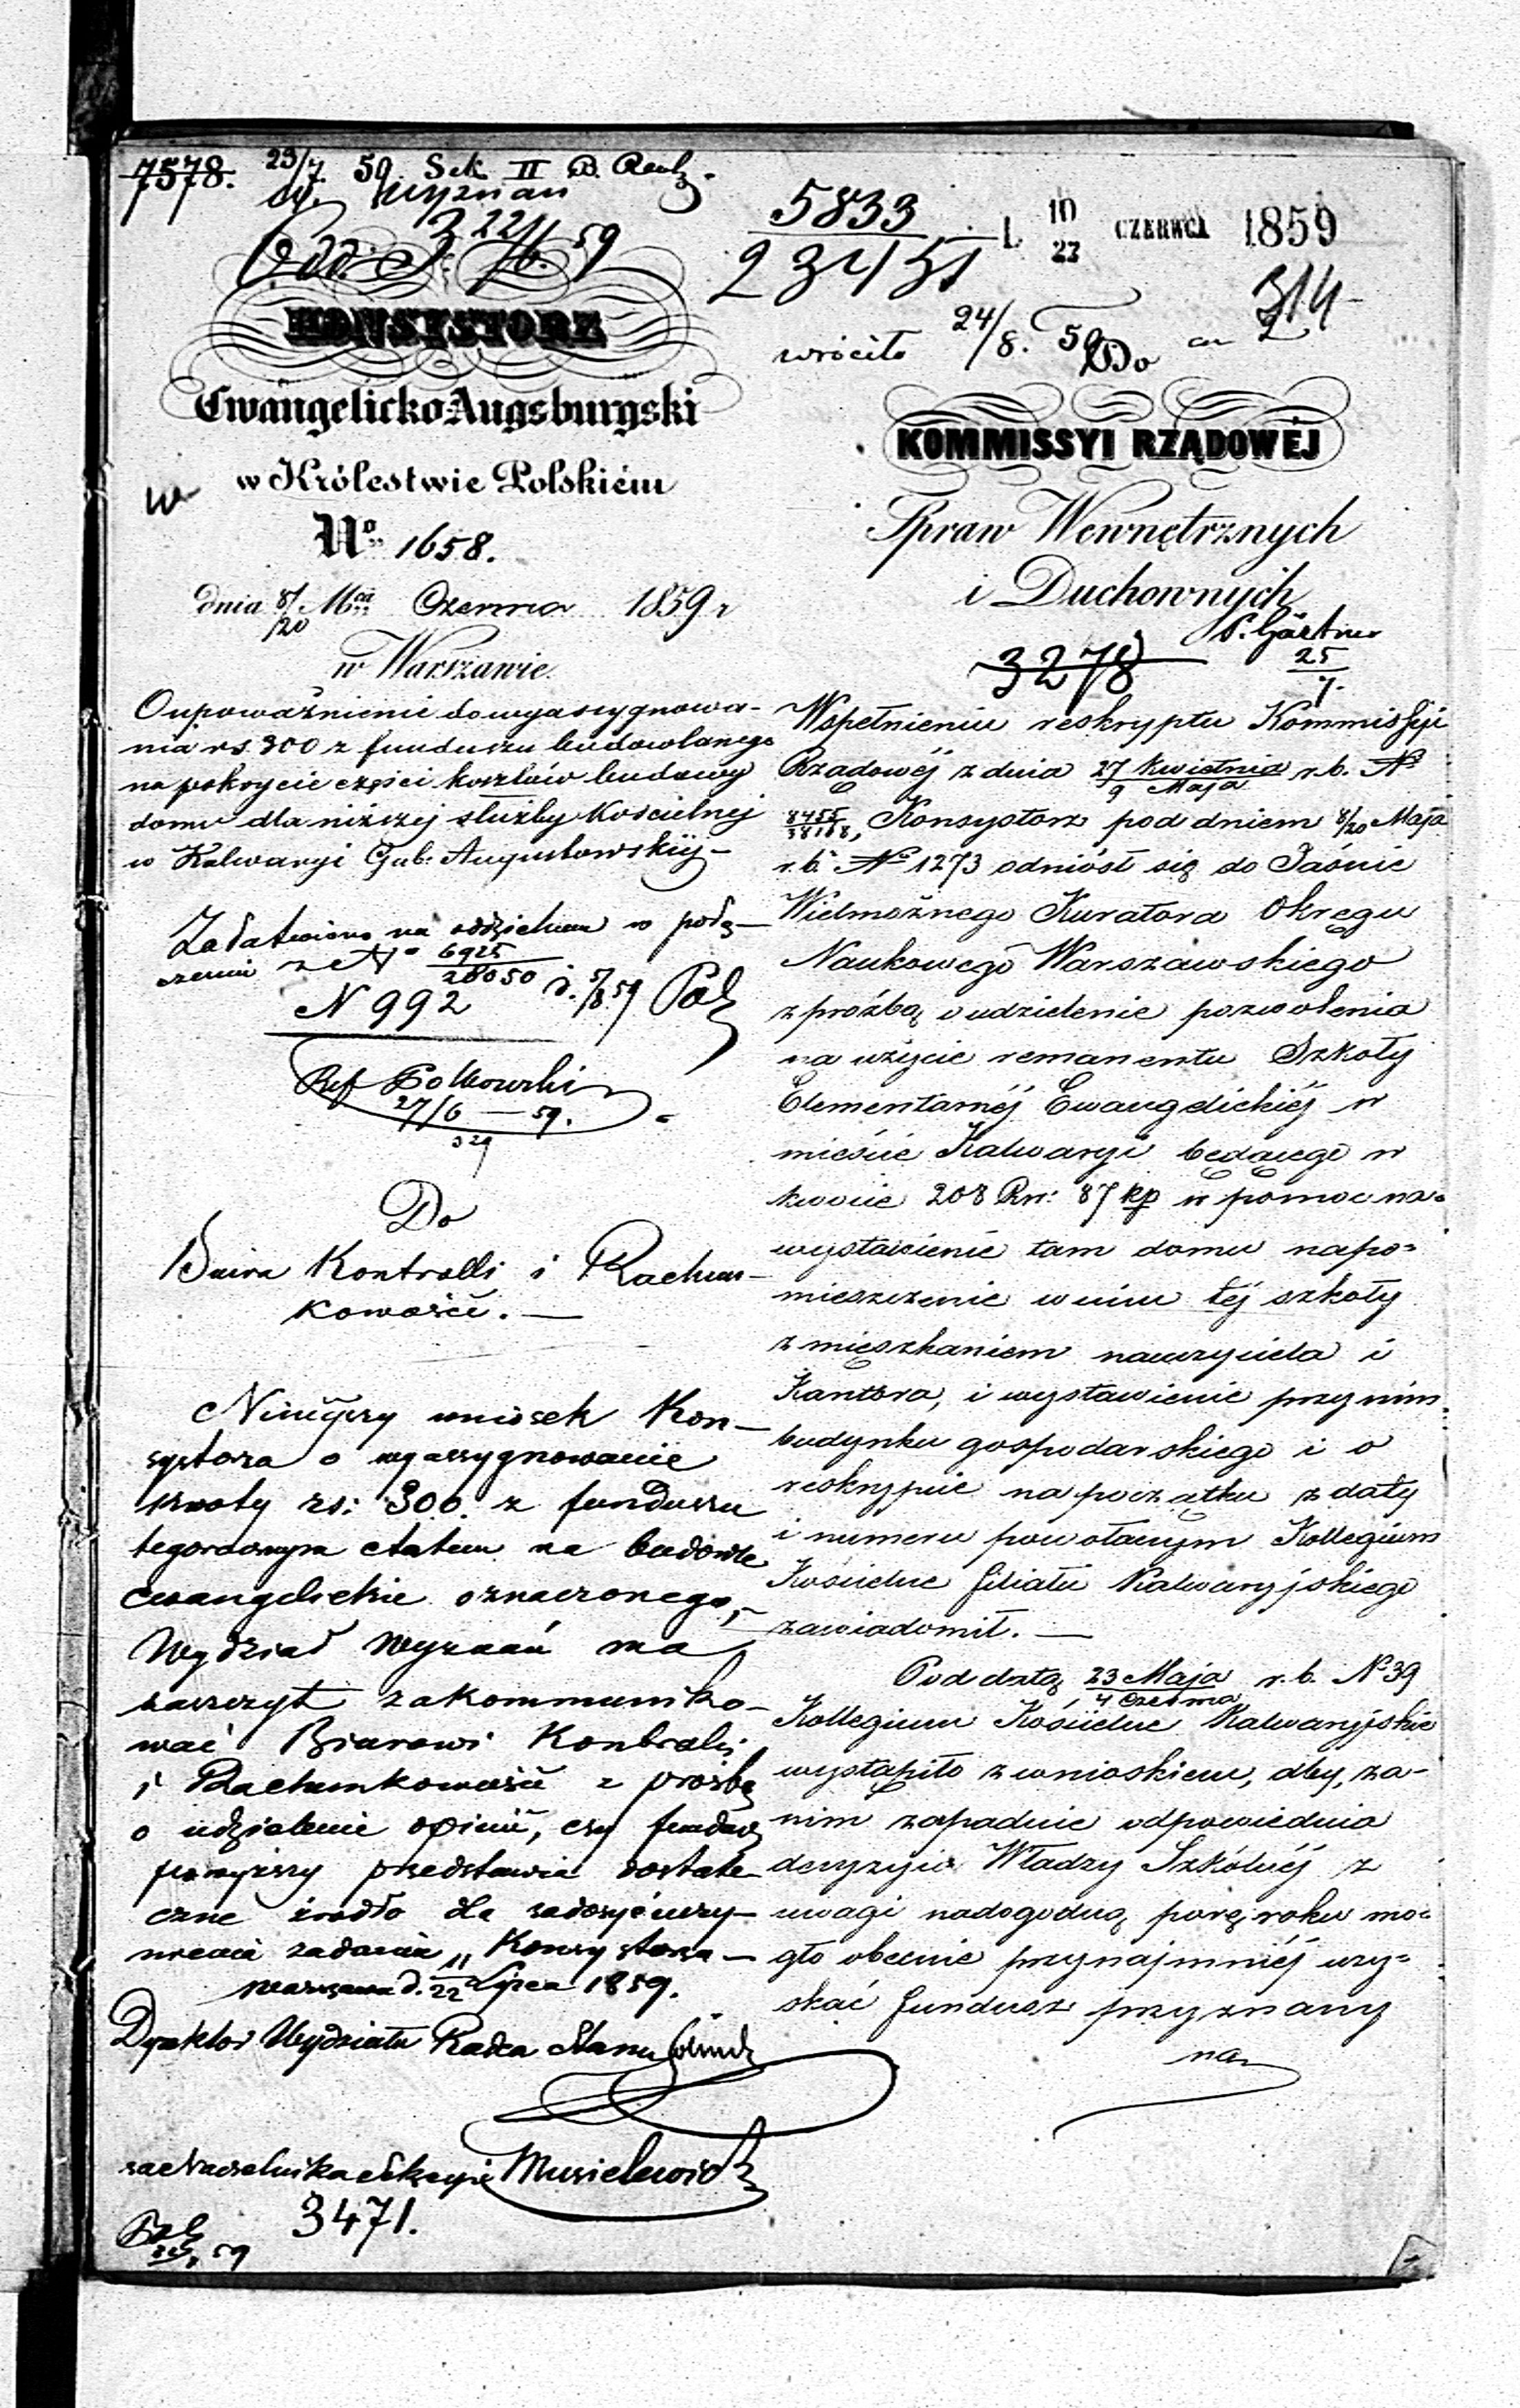 7578. 23/7 59. Sek. II B. Rach.
Wyznań
5833
23431
10
22 CZERWCA 1859
314
wróciło 24/8. 59
KONSYSTORZ
Ewangelicko-Augsburgski
w Królestwie Polskiém
No 1658.
dnia 8/20 Mca Czerwca 1859 r
w Warszawie.
O upoważnienie do wyassygnowa-
nia rs. 300 z funduszu budowlanego
na pokrycie części kosztów budowy
domu dla niższej służby Kościelnej
w Kalwaryi Gub: Augustowskiej -
Załatwiono na oddzielnem w połą-
czeniu z No 6925
28050
N 992
Ref
27/6 - 59.
329
Do
Biura Kontrolli i Rachun-
kowości. —
Niniejszy wniosek Kon-
systorza o wyassygnowanie
kwoty rs: 300. z funduszu
tegorocznym etatem na budowle
ewangelickie oznaczonego,
Wydział Wyznań ma
zaszczyt zakommuniko-
wać Biurowi Kontroli
i Rachunkowości z prośbą
o udzielenie opinii, czy fundusz
powyższy przedstawia dostate-
czne źródło dla zadosyćuczy-
nienia żądaniu Konsystorza —
Warszawa d. 11/22 Lipca 1859.
Dyrektor Wydziału Radca Stanu
za Naczelnika Sekcyi Musielewicz
3471.
59
Do
KOMMISSYI RZĄDOWÉJ
Spraw Wewnętrznych
i Duchownych
P. Gärtner
25
7.
3278
W spełnieniu reskryptu Kommissyi
Rządowéj z dnia 27 Kwietnia/9 Maja r. b. No
8455/38168, Konsystorz pod dniem 8/20 Maja
r. b. No 1273 odniósł się do Jaśnie
Wielmożnego Kuratora Okręgu
Naukowego Warszawskiego
z prośbą o udzielenie pozwolenia
na użycie remanentu Szkoły
Elementarnéj Ewangelickiéj w
mieście Kalwaryi będącego w
kwocie 208 Rs: 87 kp w pomoc na
wystawienie tam domu na po=
mieszczenie w nim téj szkoły
z mieszkaniem nauczyciela i
Kantora, i wystawienie przy nim
budynku gospodarskiego i o
reskrypcie na początku z daty
i numeru powołanym Kollegium
Kościelne filiału Kalwaryjskiego
zawiadomił. —
Pod datą 23 Maja/4 Czerwca r. b. No 39
Kollegium Kościelne Kalwaryjskie
wystąpiło z wnioskiem, aby, za-
nim zapadnie odpowiednia
decyzyia Władzy Szkólnéj z
uwagi na dogodną porę roku mo=
gło obecnie przynajmniéj uzy=
skać fundusz przyznany
na